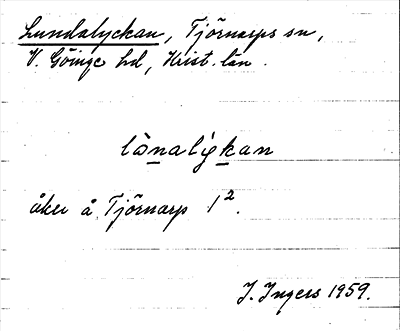 Lundalyckan, Tjörnarps sn,
V. Göinge hd, Krist. län.
lònalýkan
åker å Tjörnarp 1².
J. Ingers 1959.